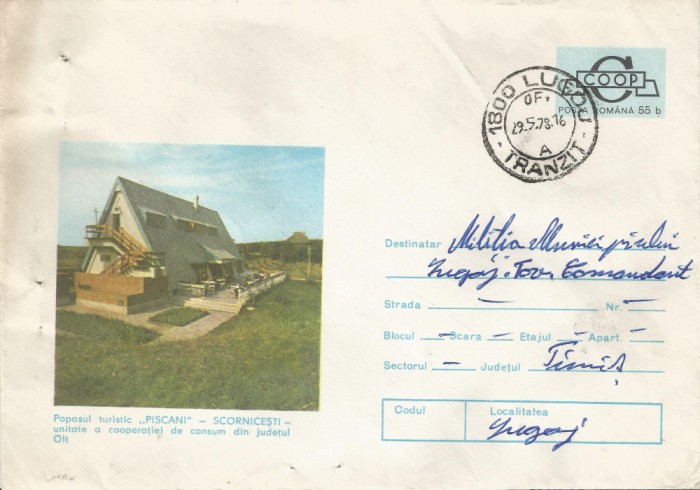 COOP
POȘTA ROMÂNĂ 55 b
1800 LUGOJ
OF.
29.5.78.16
A
- TRANZIT -
Destinatar Militia Municipiului
Lugoj. Tov. Comandant
Strada — Nr. —
Blocul — Scara — Etajul — Apart. —
Sectorul — Județul Timiș
Codul Localitatea
Lugoj
Popasul turistic „PISCANI" – SCORNICEȘTI –
unitate a cooperației de consum din județul
Olt